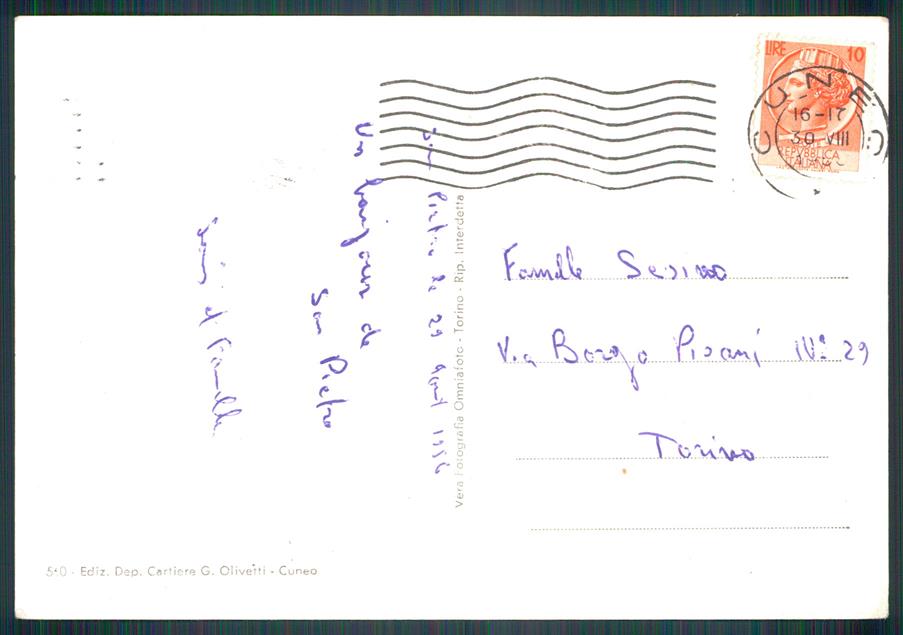 LIRE 10
CUNEO
16-17
30 VIII
REPVBBLICA
ITALIANA
San Pietro le 29 Août 1956
Un bonjour de
San Pietro
et Famille
Famille Sesino
Via Borgo Pisani Nº 29
Torino
Vera Fotografia Omniafoto - Torino - Rip. Interdetta
540 - Ediz. Dep. Cartiere G. Olivetti - Cuneo